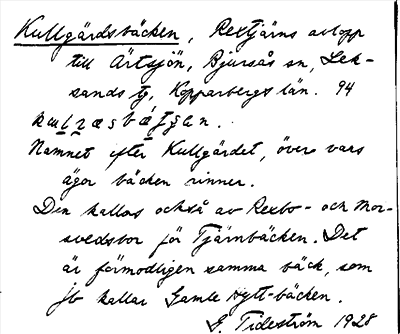 Kullgärdsbäcken, Rextjärns avlopp
till Ärtsjön, Bjursås sn, Lek-
sands tg, Kopparbergs län. 94
Namnet efter Kullgärdet, över vars
ägor bäcken rinner.
Den kallas också av Rexbo- och Mor-
svedsbor för Tjärnbäcken. Det
är förmodligen samma bäck, som
jb kallar Gamle hytt-bäcken.
G. Tideström 1928